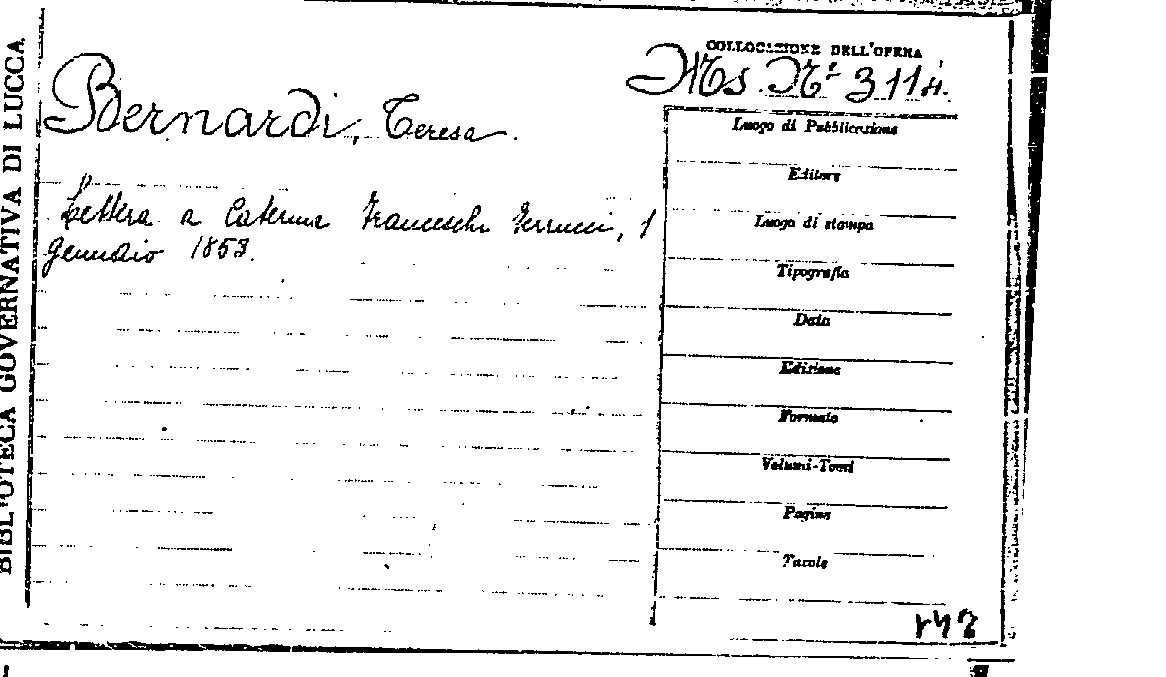 BIBLIOTECA GOVERNATIVA DI LUCCA
COLLOCAZIONE DELL'OPERA
Ms. N.º 3114.
Bernardi, Teresa.
Lettera a Caterina Franceschi Ferrucci, 1
gennaio 1853.
Luogo di Pubblicazione
Editore
Luogo di stampa
Tipografia
Data
Edizione
Formato
Volumi-Tomi
Pagine
Tavole